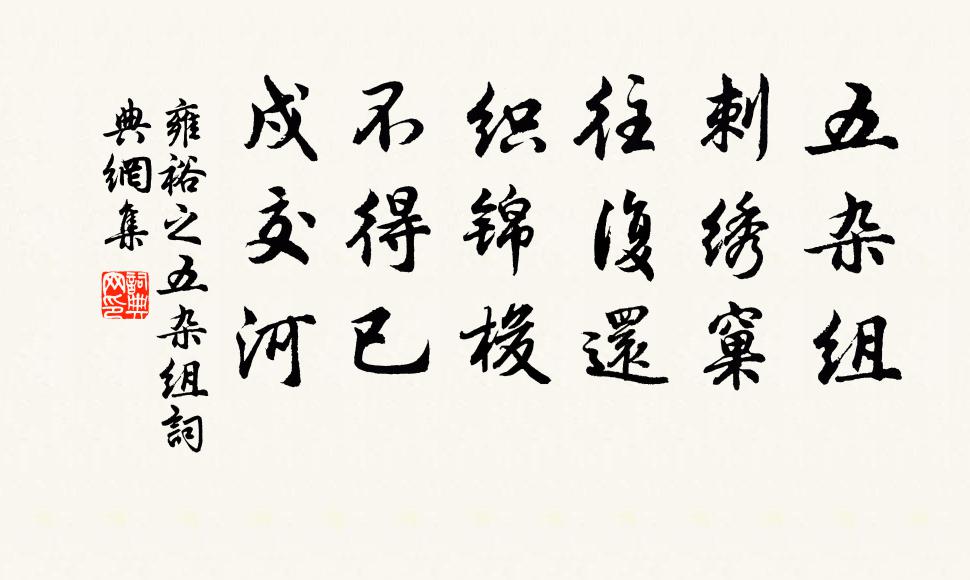 五杂组
刺绣窠
往復還
织锦梭
不得已
戍交河
雍裕之五杂组詞
典網集
詞典
网印